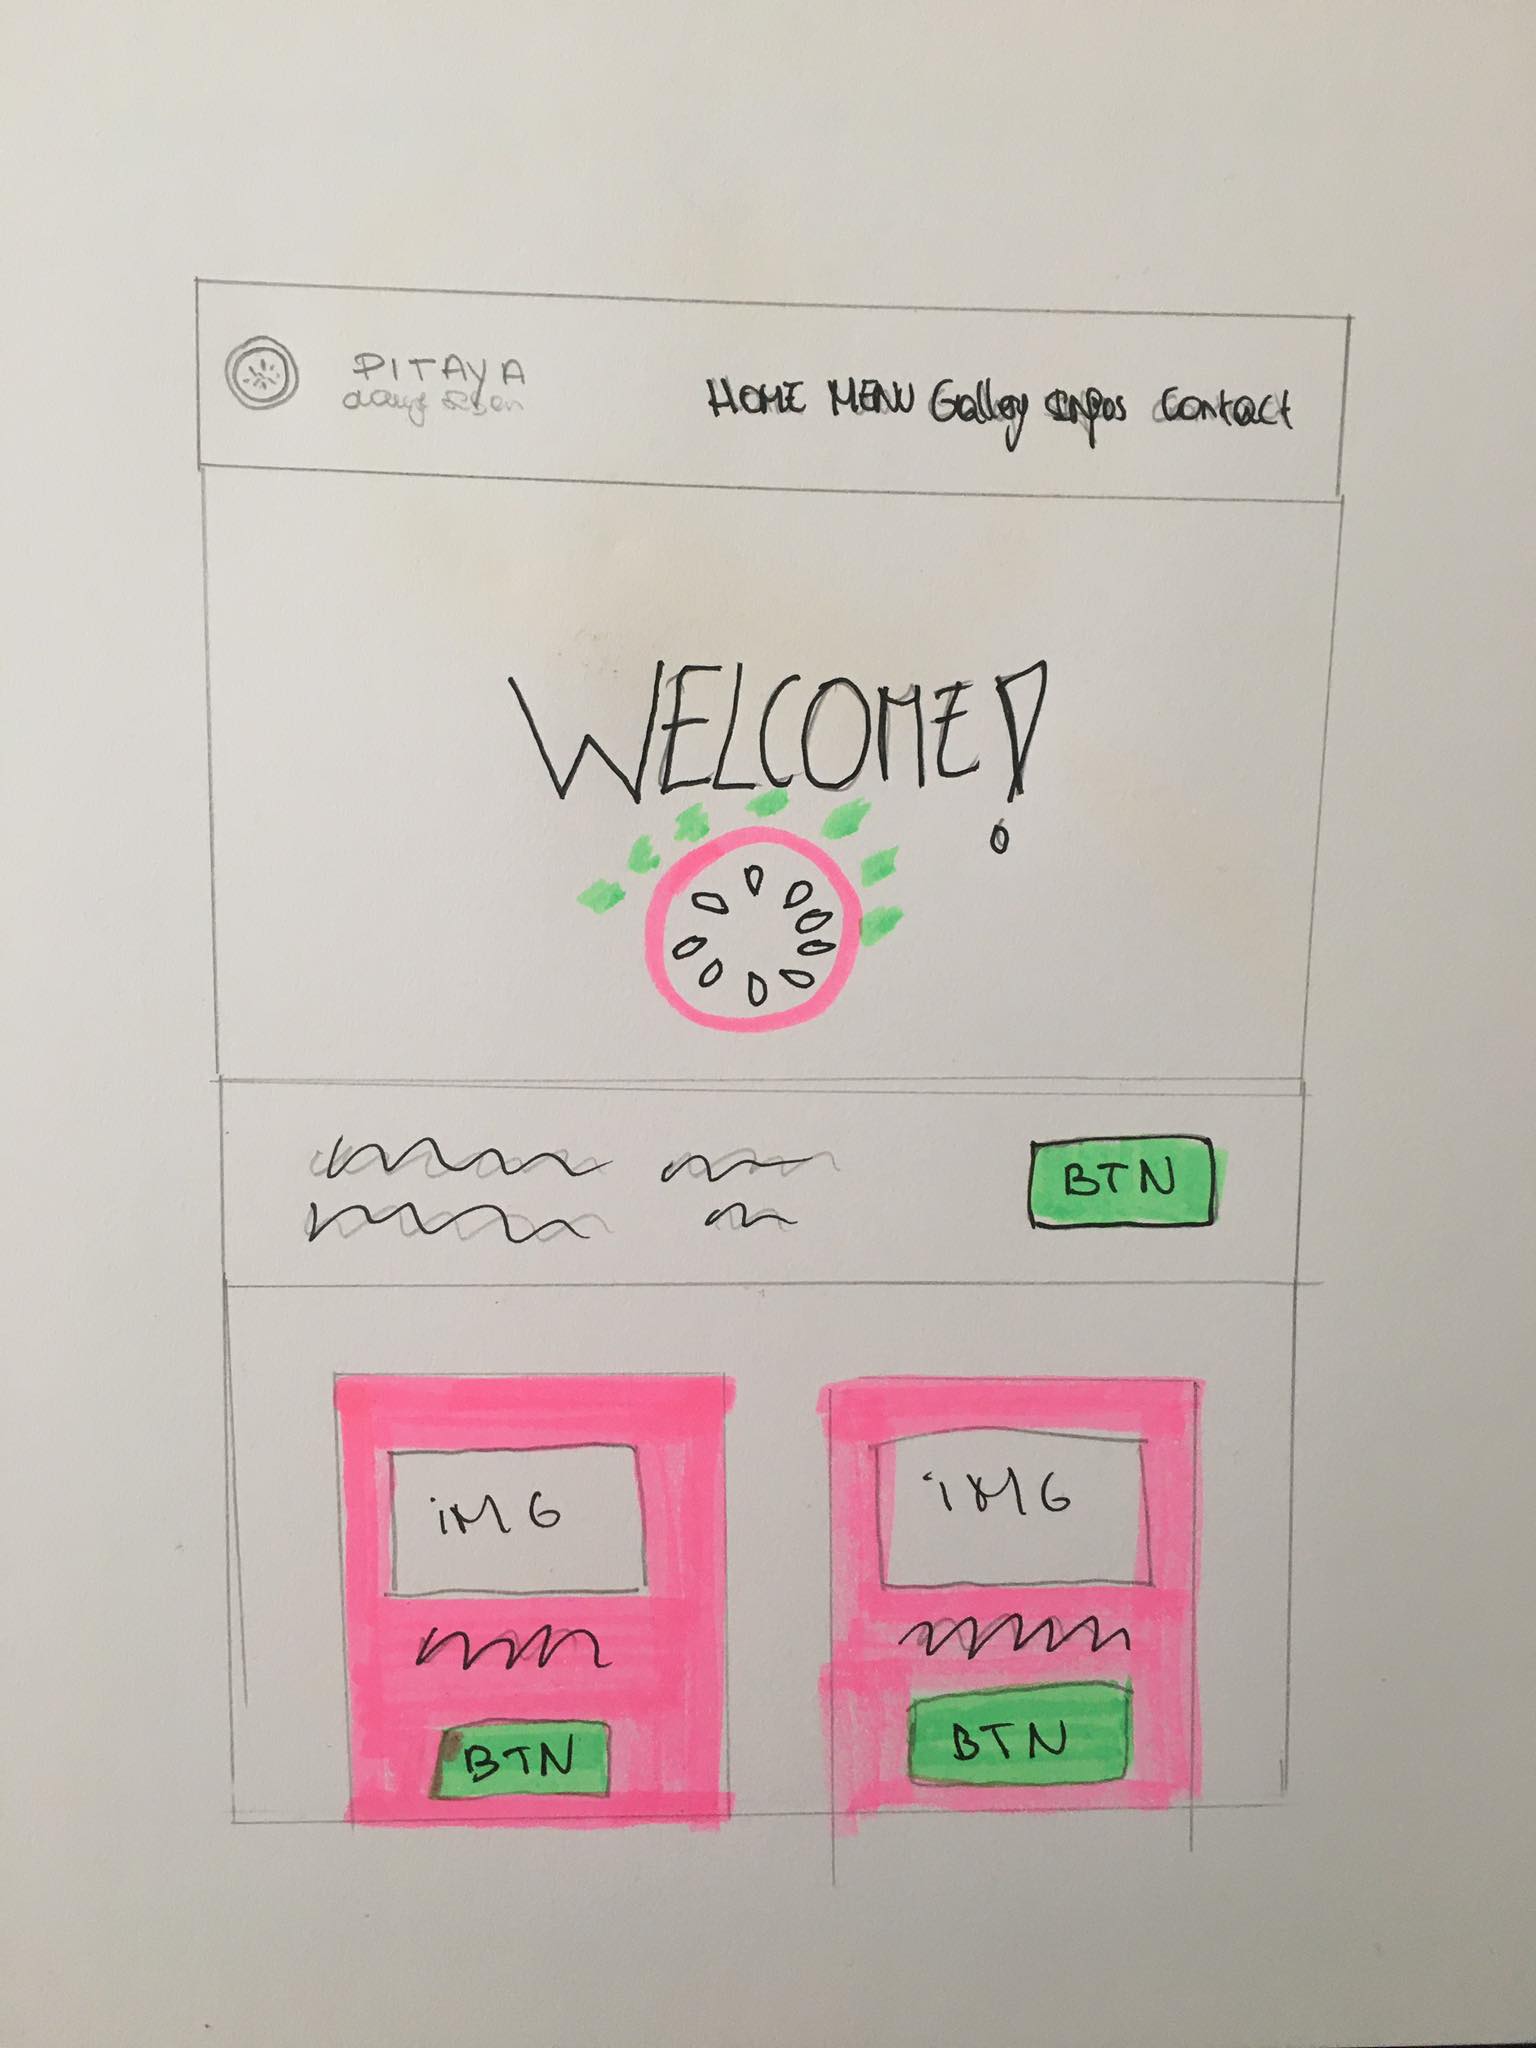 PITAYA
HOME MENU Gallery Infos Contact
WELCOME!
BTN
iMG
iMG
BTN
BTN